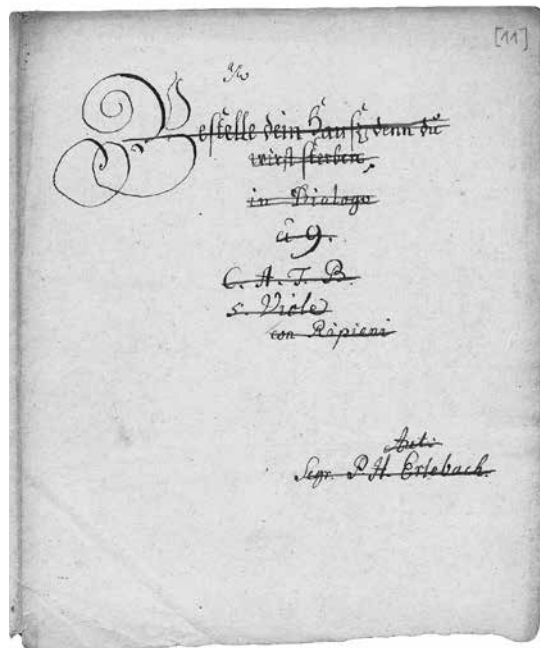 [11]
Bestelle dein Hauß, denn du
wirst sterben,
in Dialogo
à 9.
C. A. T. B.
5. Viole
con Ripieni
Aut:
P. H. Erlebach.